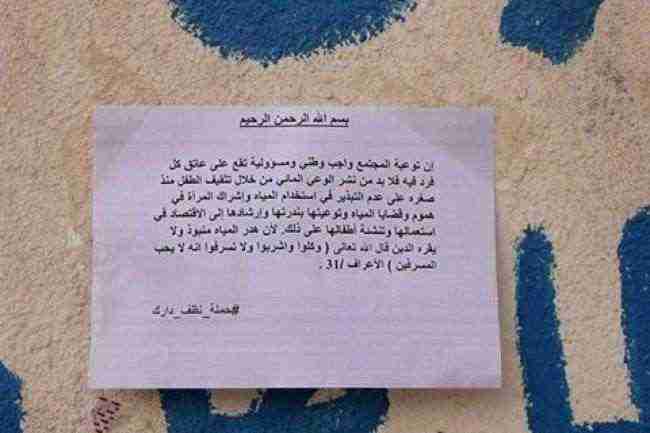 بسم الله الرحمن الرحيم
إن توعية المجتمع واجب وطني ومسؤولية تقع على عاتق كل
فرد فيه فلا بد من نشر الوعي المائي من خلال تثقيف الطفل منذ
صغره على عدم التبذير في استخدام المياه وإشراك المرأة في
هموم وقضايا المياه وتوعيتها بندرتها وإرشادها إلى الاقتصاد في
استعمالها وتنشئة أطفالها على ذلك. لأن هدر المياه منبوذ ولا
يقره الدين قال الله تعالى ( وكلوا واشربوا ولا تسرفوا انه لا يحب
المسرفين ) الأعراف /31 .
#حملة_نظف_دارك